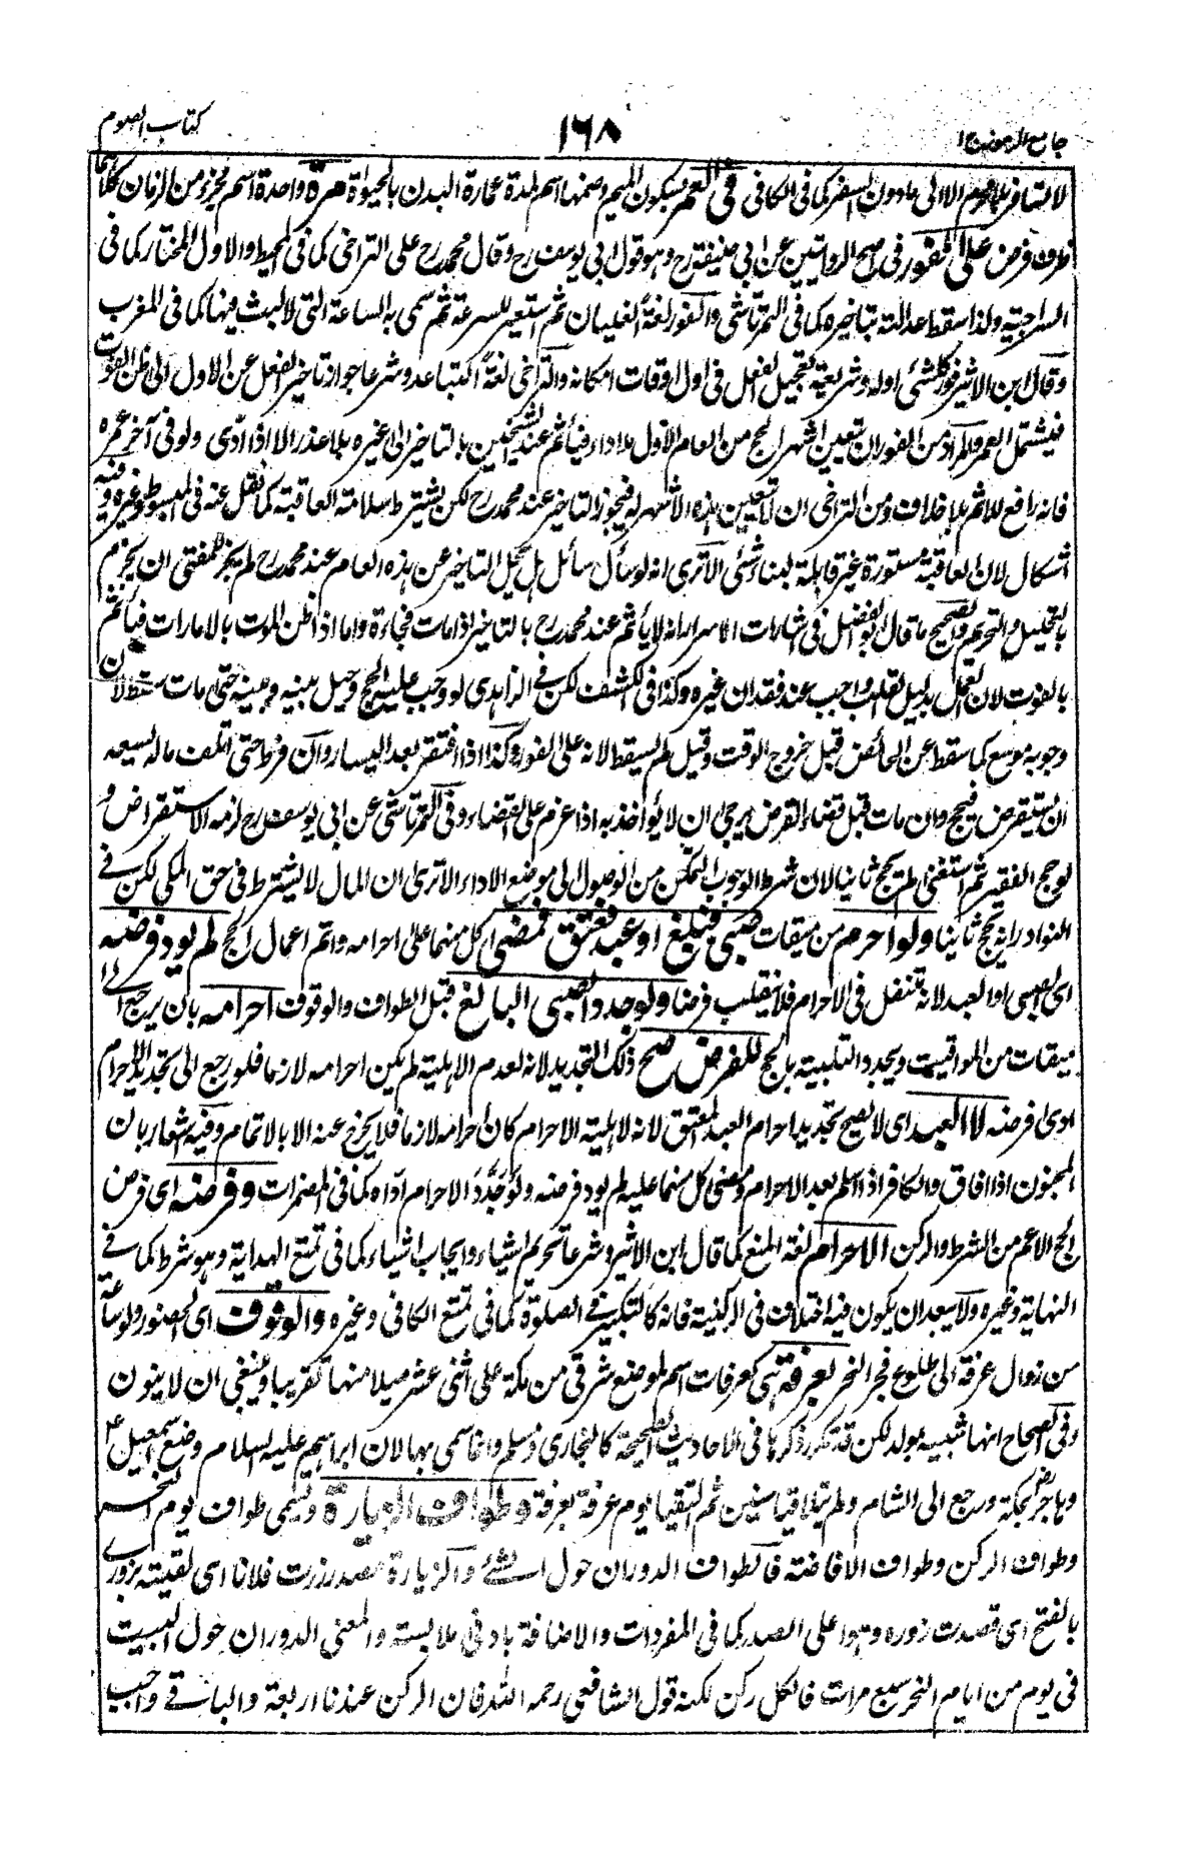 جامع الرموز ج ١
١٦٨
كتاب الصوم
لا تسافر بلا محرم الا الى ما دون السفر كما فى الكافى فى العمر بسكون الميم وضمها اسم لمدة عمارة البدن بالحيوة مرة واحدة اسم لجزء من الزمان كلاهما
ظرف فرض على الفور فى اصح الروايتين عن ابى حنيفة رح وهو قول ابى يوسف رح وقال محمد رح على التراخى كما فى المحيط والاول المختار كما فى
السراجية ولذا سقط عدالته بتاخيره كما فى التمرتاشى والفور لغة الغليان ثم استعير للسرعة ثم سمى به الساعة التى لا لبث فيها كما فى المغرب
وقال ابن الاثير فور كل شئ اوله وشريعة تعجيل الفعل فى اول اوقات امكانه والتراخى لغة التباعد وشرعا جواز تاخير الفعل عن الاول الى ظن الفوت
فيشتمل العمر والمراد من الفور ان تعين اشهر الحج من العام الاول بلا اداء فيأثم عند الشيخين بالتاخير الى غيره بلا عذر الا اذا ادى ولو فى آخر عمره
فانه رافع للاثم بلا خلاف ومن التراخى ان لا تعيين هذه الاشهر له فيجوز التاخير عند محمد رح لكن بشترط سلامة العاقبة كما نقل عنه فى المبسوط وغيره وفيه
اشكال لان العاقبة مستورة غير قابلة لبناء شئ الا ترى انه لو سأل سائل هل يحل التاخير عن هذه العام عند محمد رح لم يجز للمفتى ان يجزم
بالتحليل والتحريم والصحيح ما قال ابو الفضل فى اشارات الاسرار انه لا يأثم عند محمد رح بالتاخير اذا مات فجاءة واما اذا ظن الموت بالامارات فيأثم
بالفوت لان العمل بدليل القلب واجب عند فقدان غيره وكذا فى الكشف لكن فى الزاهدى لو وجب عليه الحج وحيل بينه وبينه حتى مات سقط لان
وجوبه موسع كما سقط عن الحائض قبل خروج الوقت وقيل لم يسقط لانه على الفور وكذا اذا افتقر بعد اليسار وان فرط حتى اتلف ماله يسعه
ان يستقرض فيحج وان مات قبل قضاء القرض يرجى ان لا يؤاخذ به اذا عزم على القضاء وفى التمرتاشى عن ابى يوسف رح لزمه الاستقراض و
لو حج الفقير ثم استغنى لم يحج ثانيا لان شرط الوجوب التمكن من الوصول الى موضع الاداء الا ترى ان المال لا يشترط فى حق المكى لكن فى
النوادر انه يحج ثانيا ولو احرم من ميقات صبى فبلغ او عبد فعتق فمضى اى كل منهما على احرامه واتم اعمال الحج لم يود فرضه
اى الصبى او العبد لانه تنفل فى الاحرام فلا ينقلب فرضا ولو جدد الصبى البالغ قبل الطواف والوقوف احرامه بان يرجع الى
ميقات من المواقيت ويجدد التلبية بالحج للفرض صح ذلك التجديد لانه لعدم الاهلية لم يكن احرامه لازما فلو رجع الى تجديد الاحرام
ادى فرضه لا العبد اى لا يصح تجديد احرام العبد المعتق لانه لاهلية الاحرام كان احرامه لازما فلا يخرج عنه الا بالاتمام وفيه اشعار بان
المجنون اذا افاق والكافر اذا اسلم بعد الاحرام ومضى كل منهما عليه لم يود فرضه ولو جدد الاحرام اداه كما فى المضمرات وفرضه اى فرض
الحج الاعم من الشرط والركن الاحرام لغة المنع كما قال ابن الاثير وشرعا تحريم اشياء وايجاب اشياء كما فى تمتع الهداية وهو شرط كما فى
النهاية وغيره ولا يبعد ان يكون فيه اختلاف فى الركنية فانه كالتكبير فى الصلوة كما فى تمتع الكافى وغيره والوقوف اى الحضور ولو ساعة
من زوال عرفة الى طلوع فجر النحر بعرفة هى كعرفات اسم لموضع شرقى من مكة على اثنى عشر ميلا منها تقريبا وينبغى ان لا ينون
وفى الصحاح انها شبيه بمولد لكن قد تكرر ذكرها فى الاحاديث الصحيحة كالبخارى ومسلم وانما سمى بها لان ابراهيم عليه السلام وضع اسمعيل ع
وهاجر بمكة ورجع الى الشام ولم يتلاقيا سنين ثم التقيا يوم عرفة بعرفة وطواف الزيارة ويسمى طواف يوم النحر
وطواف الركن وطواف الافاضة فالطواف الدوران حول الشئ والزيارة مصدر زرت فلانا اى لقيته بزورى
بالفتح اى قصدت زوره وهو اعلى الصدر كما فى المفردات والاضافة بادنى ملابسة والمعنى الدوران حول البيت
فى يوم من ايام النحر سبع مرات فالكل ركن لكنه قول الشافعى رحمه الله فان الركن عندنا اربعة والباقى واجب